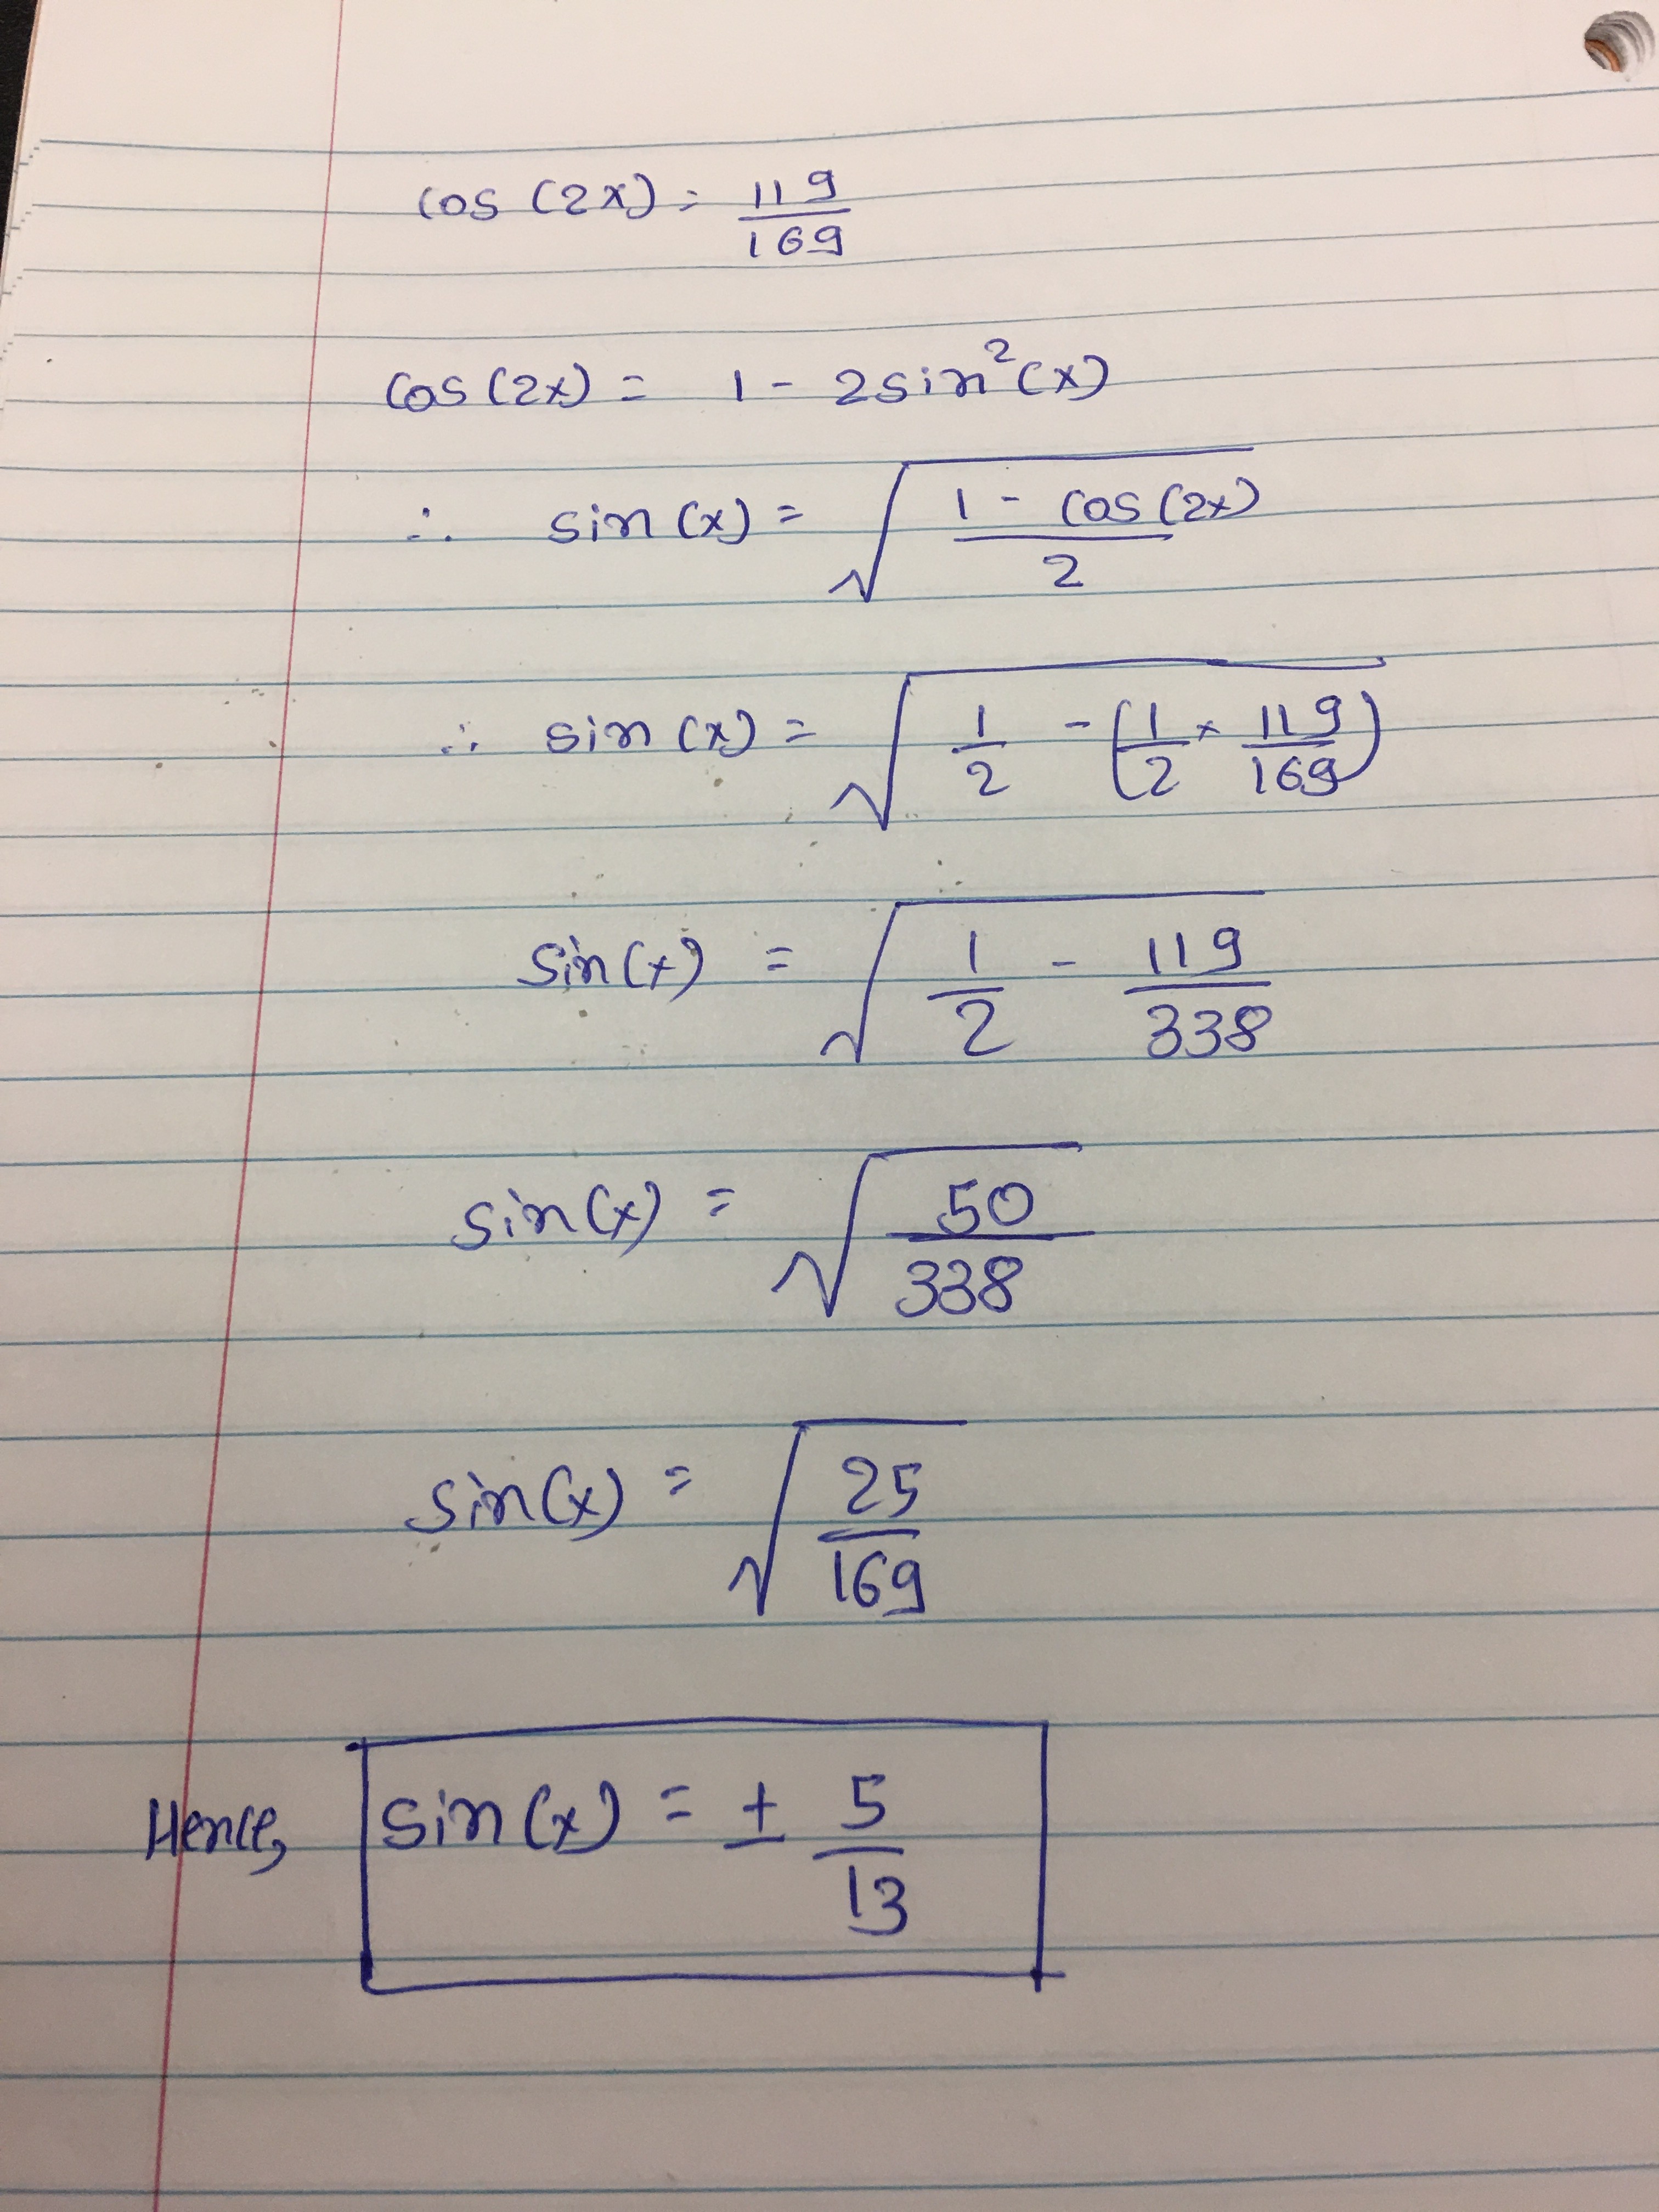 cos (2x) = 119/169
cos (2x) = 1 - 2sin²(x)
∴ sin (x) = √((1 - cos (2x))/2)
∴ sin (x) = √(1/2 - (1/2 × 119/169))
sin(x) = √(1/2 - 119/338)
sin(x) = √(50/338)
sin(x) = √(25/169)
Hence, sin (x) = ± 5/13